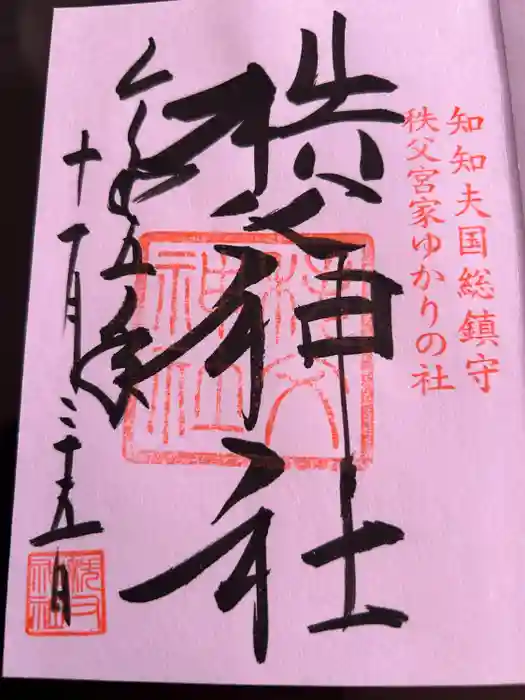 知知夫国総鎮守
秩父宮家ゆかりの社
秩父神社
令和五年
十一月二十五日
秩父神社
秩父神社